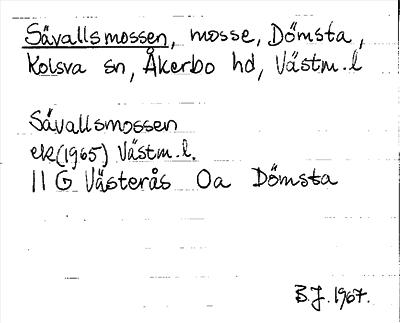 Sävallsmossen, mosse, Dömsta,
Kolsva sn, Åkerbo hd, Västm.l
Sävallsmossen
ek(1965) Västm.l.
11 G Västerås Oa Dömsta
B.J. 1967.